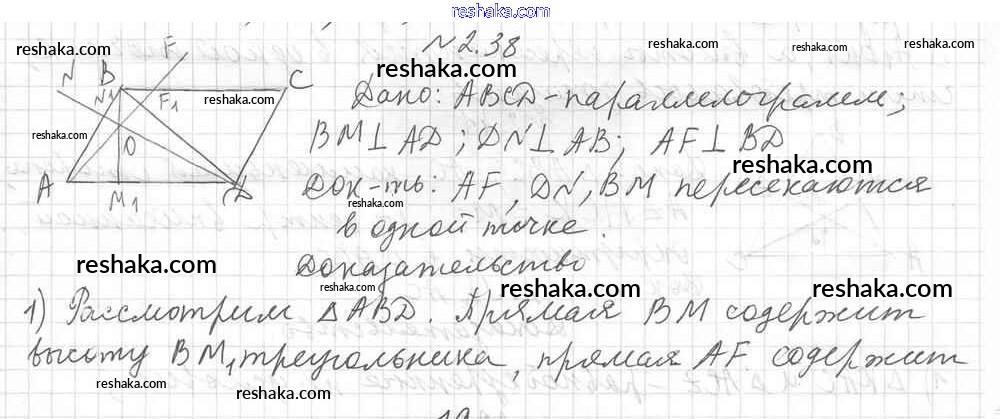 reshaka.com
№2.38
reshaka.com
F
reshaka.com
reshaka.com
reshaka.com
N
B
C
reshaka.com
N1
F1
reshaka.com
Дано: ABCD - параллелограмм;
reshaka.com
O
BM ⊥ AD; DN ⊥ AB; AF ⊥ BD
reshaka.com
A
M1
D
Док-ть: AF, DN, BM пересекаются
reshaka.com
в одной точке.
reshaka.com
Доказательство
reshaka.com
reshaka.com
reshaka.com
1) Рассмотрим △ABD. Прямая BM содержит
высоту BM1 треугольника, прямая AF содержит
reshaka.com
reshaka.com